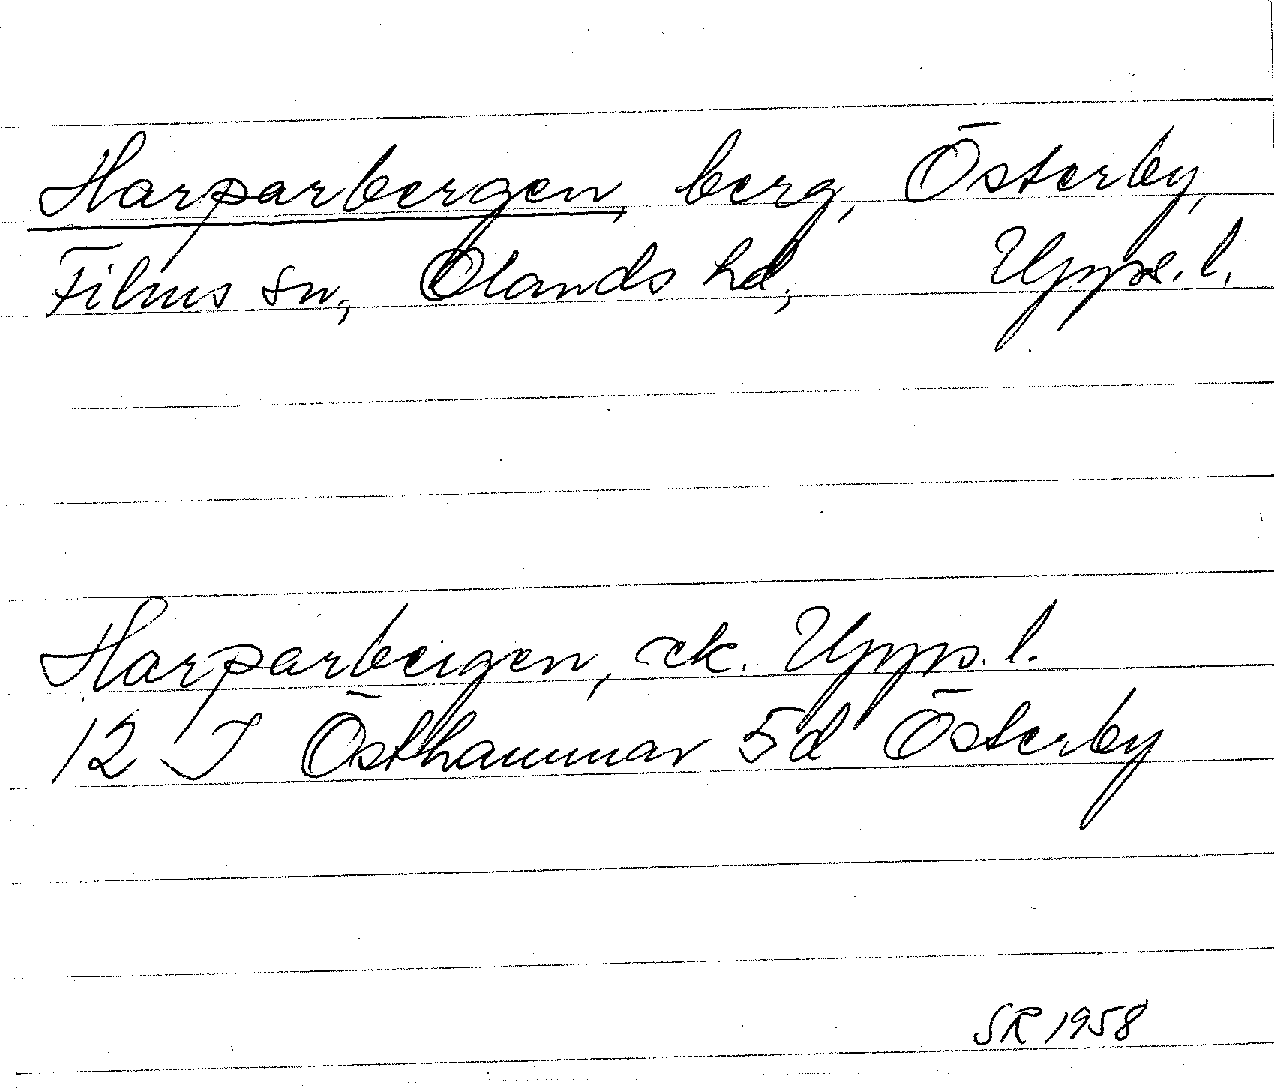 Harparbergen, berg, Österby,
Films sn, Olands hd, Upps. l.
Harparbergen, ek. Upps. l.
12 I Östhammar 5d Österby
SR 1958